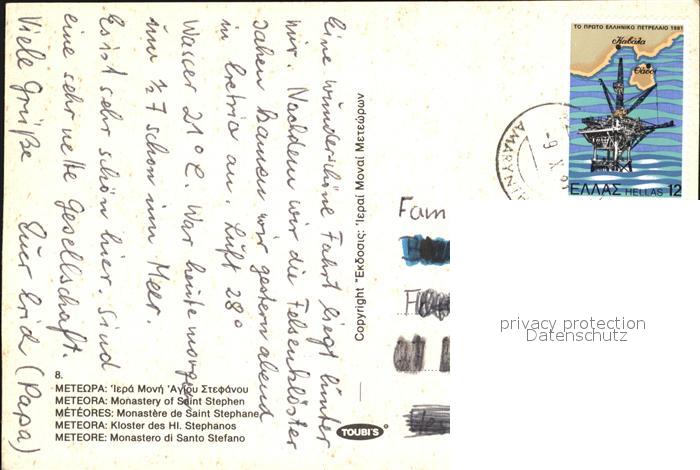 Eine wunderschöne Fahrt liegt hinter
mir. Nachdem wir die Felsenklöster
sahen kamen wir gestern abend
in Eretria an. Luft 28°
Wasser 21° C. War heute morgen
um ½ 7 schon im Meer.
Es ist sehr schön hier. Sind
eine sehr nette Gesellschaft.
Viele Grüße Euer (Papa)
8.
ΜΕΤΕΩΡΑ: Ἱερά Μονή Ἁγίου Στεφάνου
METEORA: Monastery of Saint Stephen
MÉTÉORES: Monastère de Saint Stephane
METEORA: Kloster des Hl. Stephanos
METEORE: Monastero di Santo Stefano
Copyright Ἔκδοσις: Ἱεραί Μοναί Μετεώρων
TOUBI'S
Fam
ΤΟ ΠΡΩΤΟ ΕΛΛΗΝΙΚΟ ΠΕΤΡΕΛΑΙΟ 1981
Καβάλα
Θάσος
ΕΛΛΑΣ HELLAS 12
privacy protection
Datenschutz